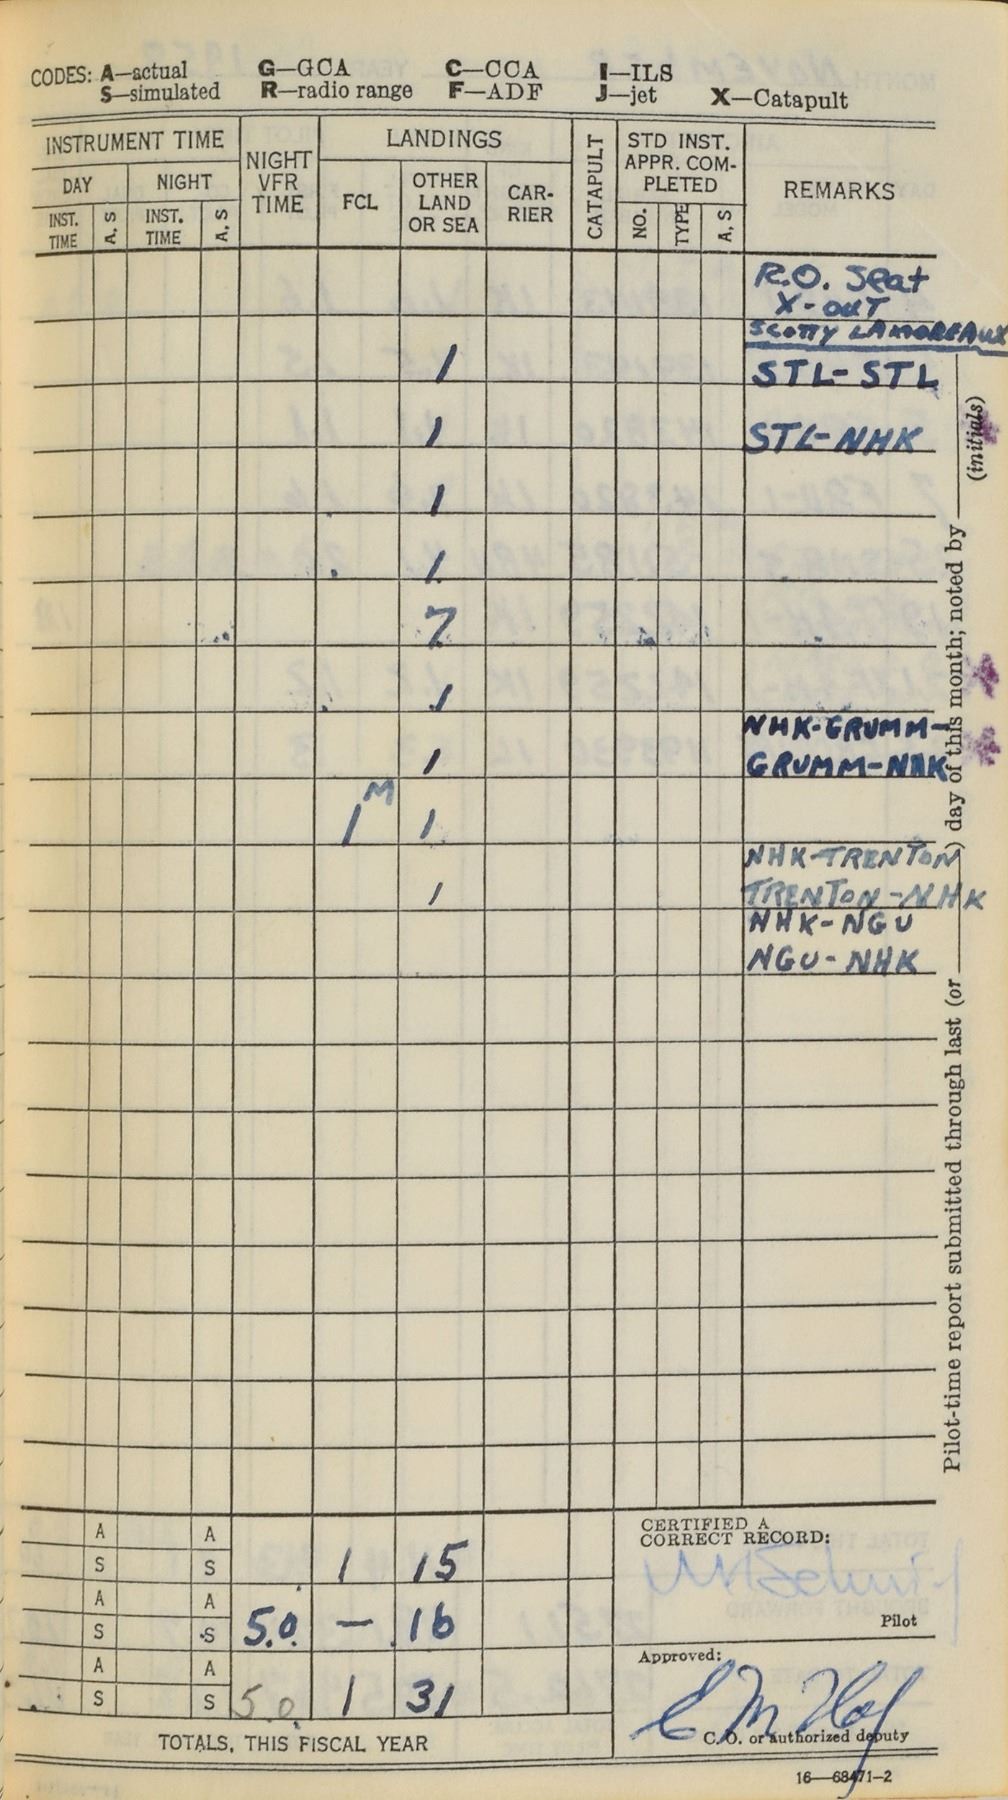 CODES: A—actual G—GCA C—CCA I—ILS
S—simulated R—radio range F—ADF J—jet X—Catapult
INSTRUMENT TIME
NIGHT VFR TIME
LANDINGS
CATAPULT
STD INST. APPR. COM-PLETED
REMARKS
DAY
NIGHT
FCL
OTHER LAND OR SEA
CAR-RIER
INST. TIME
A, S
INST. TIME
A, S
NO.
TYPE
A, S
R.O. Seat
X-OUT
SCOTTY LAMOREAUX
1 STL-STL
1 STL-NHK
1
1
7
1
NHK-GRUMM-
1 GRUMM-NHK
M
1 1
NHK-TRENTON
1 TRENTON-NHK
NHK-NGU
NGU-NHK
Pilot-time report submitted through last (or ) day of this month; noted by (initials)
A A
S S 1 15
A A
S S 5.0 — 16
A A
S S 5.0 1 31
TOTALS, THIS FISCAL YEAR
CERTIFIED A
CORRECT RECORD:
Pilot
Approved:
C. O. or authorized deputy
16—68471-2